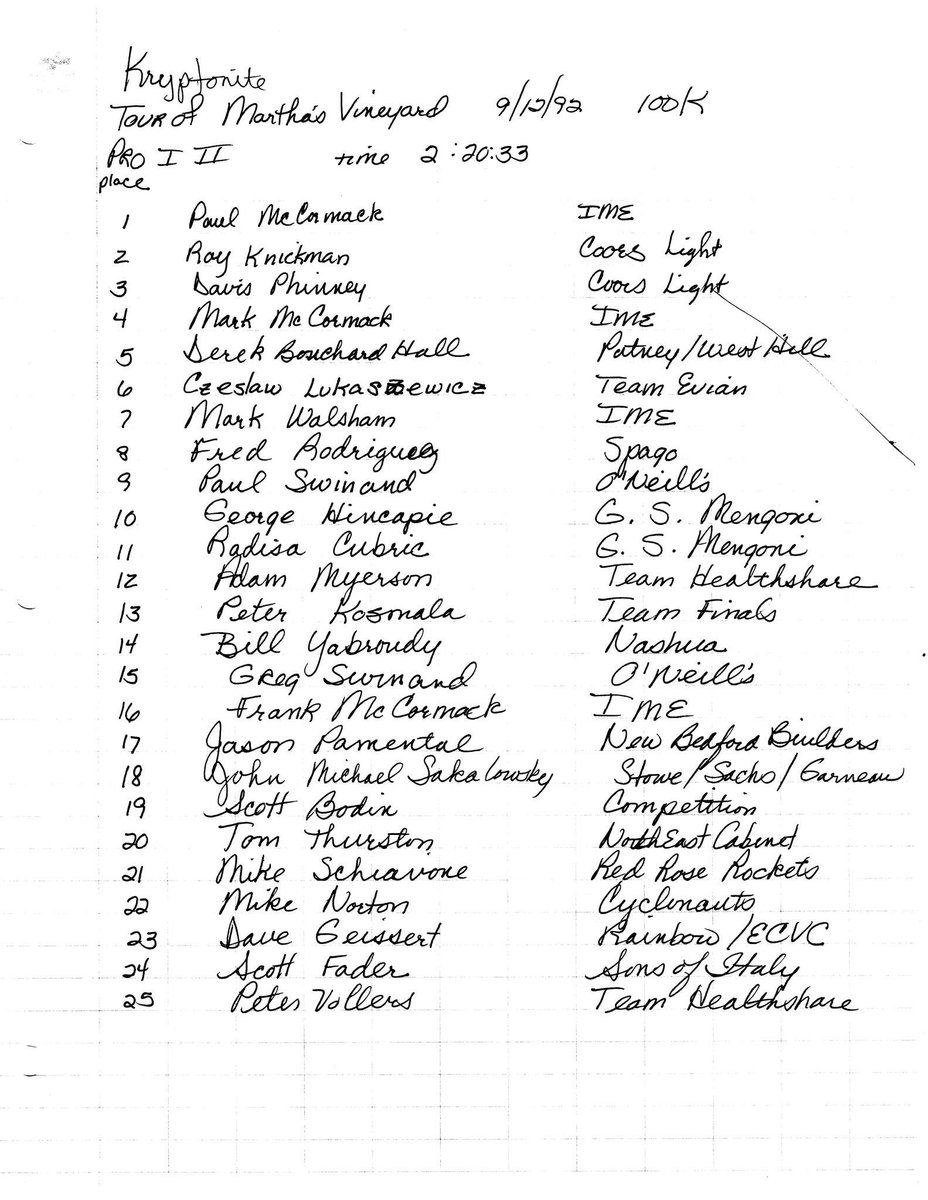 Kryptonite
Tour of Martha's Vineyard 9/12/92 100K
PRO I II time 2:20:33
place
1 Paul McCormack IME
2 Roy Knickman Coors Light
3 Davis Phinney Coors Light
4 Mark McCormack IME
5 Derek Bouchard Hall Putney/West Hill
6 Czeslaw Lukaszewicz Team Evian
7 Mark Walsham IME
8 Fred Rodriguez Spago
9 Paul Swinand O'Neill's
10 George Hincapie G. S. Mengoni
11 Radisa Cubric G. S. Mengoni
12 Adam Myerson Team Healthshare
13 Peter Kosmala Team Finals
14 Bill Yabroudy Nashua
15 Greg Swinand O'Neill's
16 Frank McCormack IME
17 Jason Pamental New Bedford Builders
18 John Michael Sakalowsky Stowe/Sachs/Garneau
19 Scott Bodin Competition
20 Tom Thurston NorthEast Cabinet
21 Mike Schiavone Red Rose Rockets
22 Mike Norton Cyclonauts
23 Dave Geissert Rainbow/ECVC
24 Scott Fader Sons of Italy
25 Peter Vollers Team Healthshare